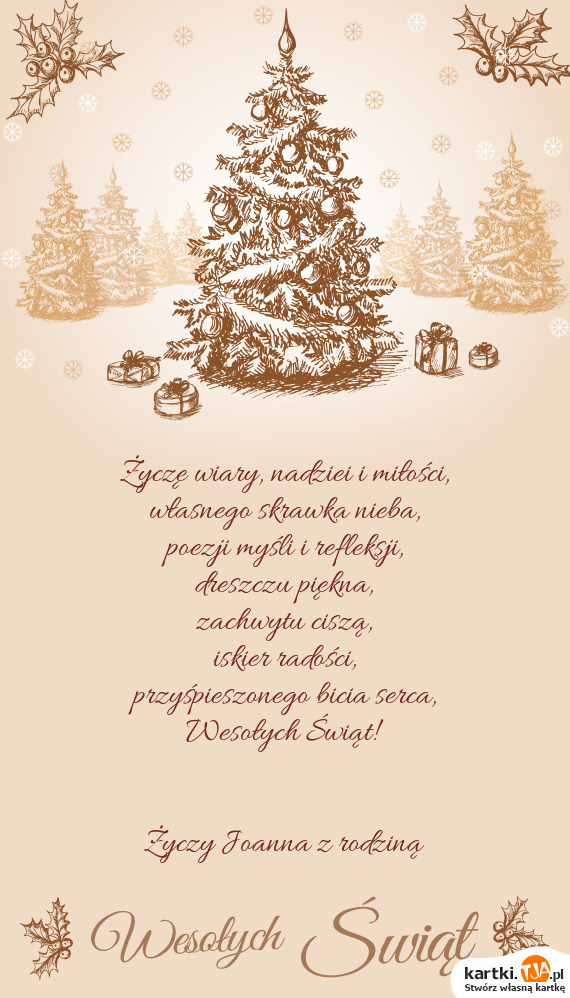 Życzę wiary, nadziei i miłości,
własnego skrawka nieba,
poezji myśli i refleksji,
dreszczu piękna,
zachwytu ciszą,
iskier radości,
przyśpieszonego bicia serca,
Wesołych Świąt!
Życzy Joanna z rodziną
Wesołych Świąt
kartki.TJA.pl
Stwórz własną kartkę